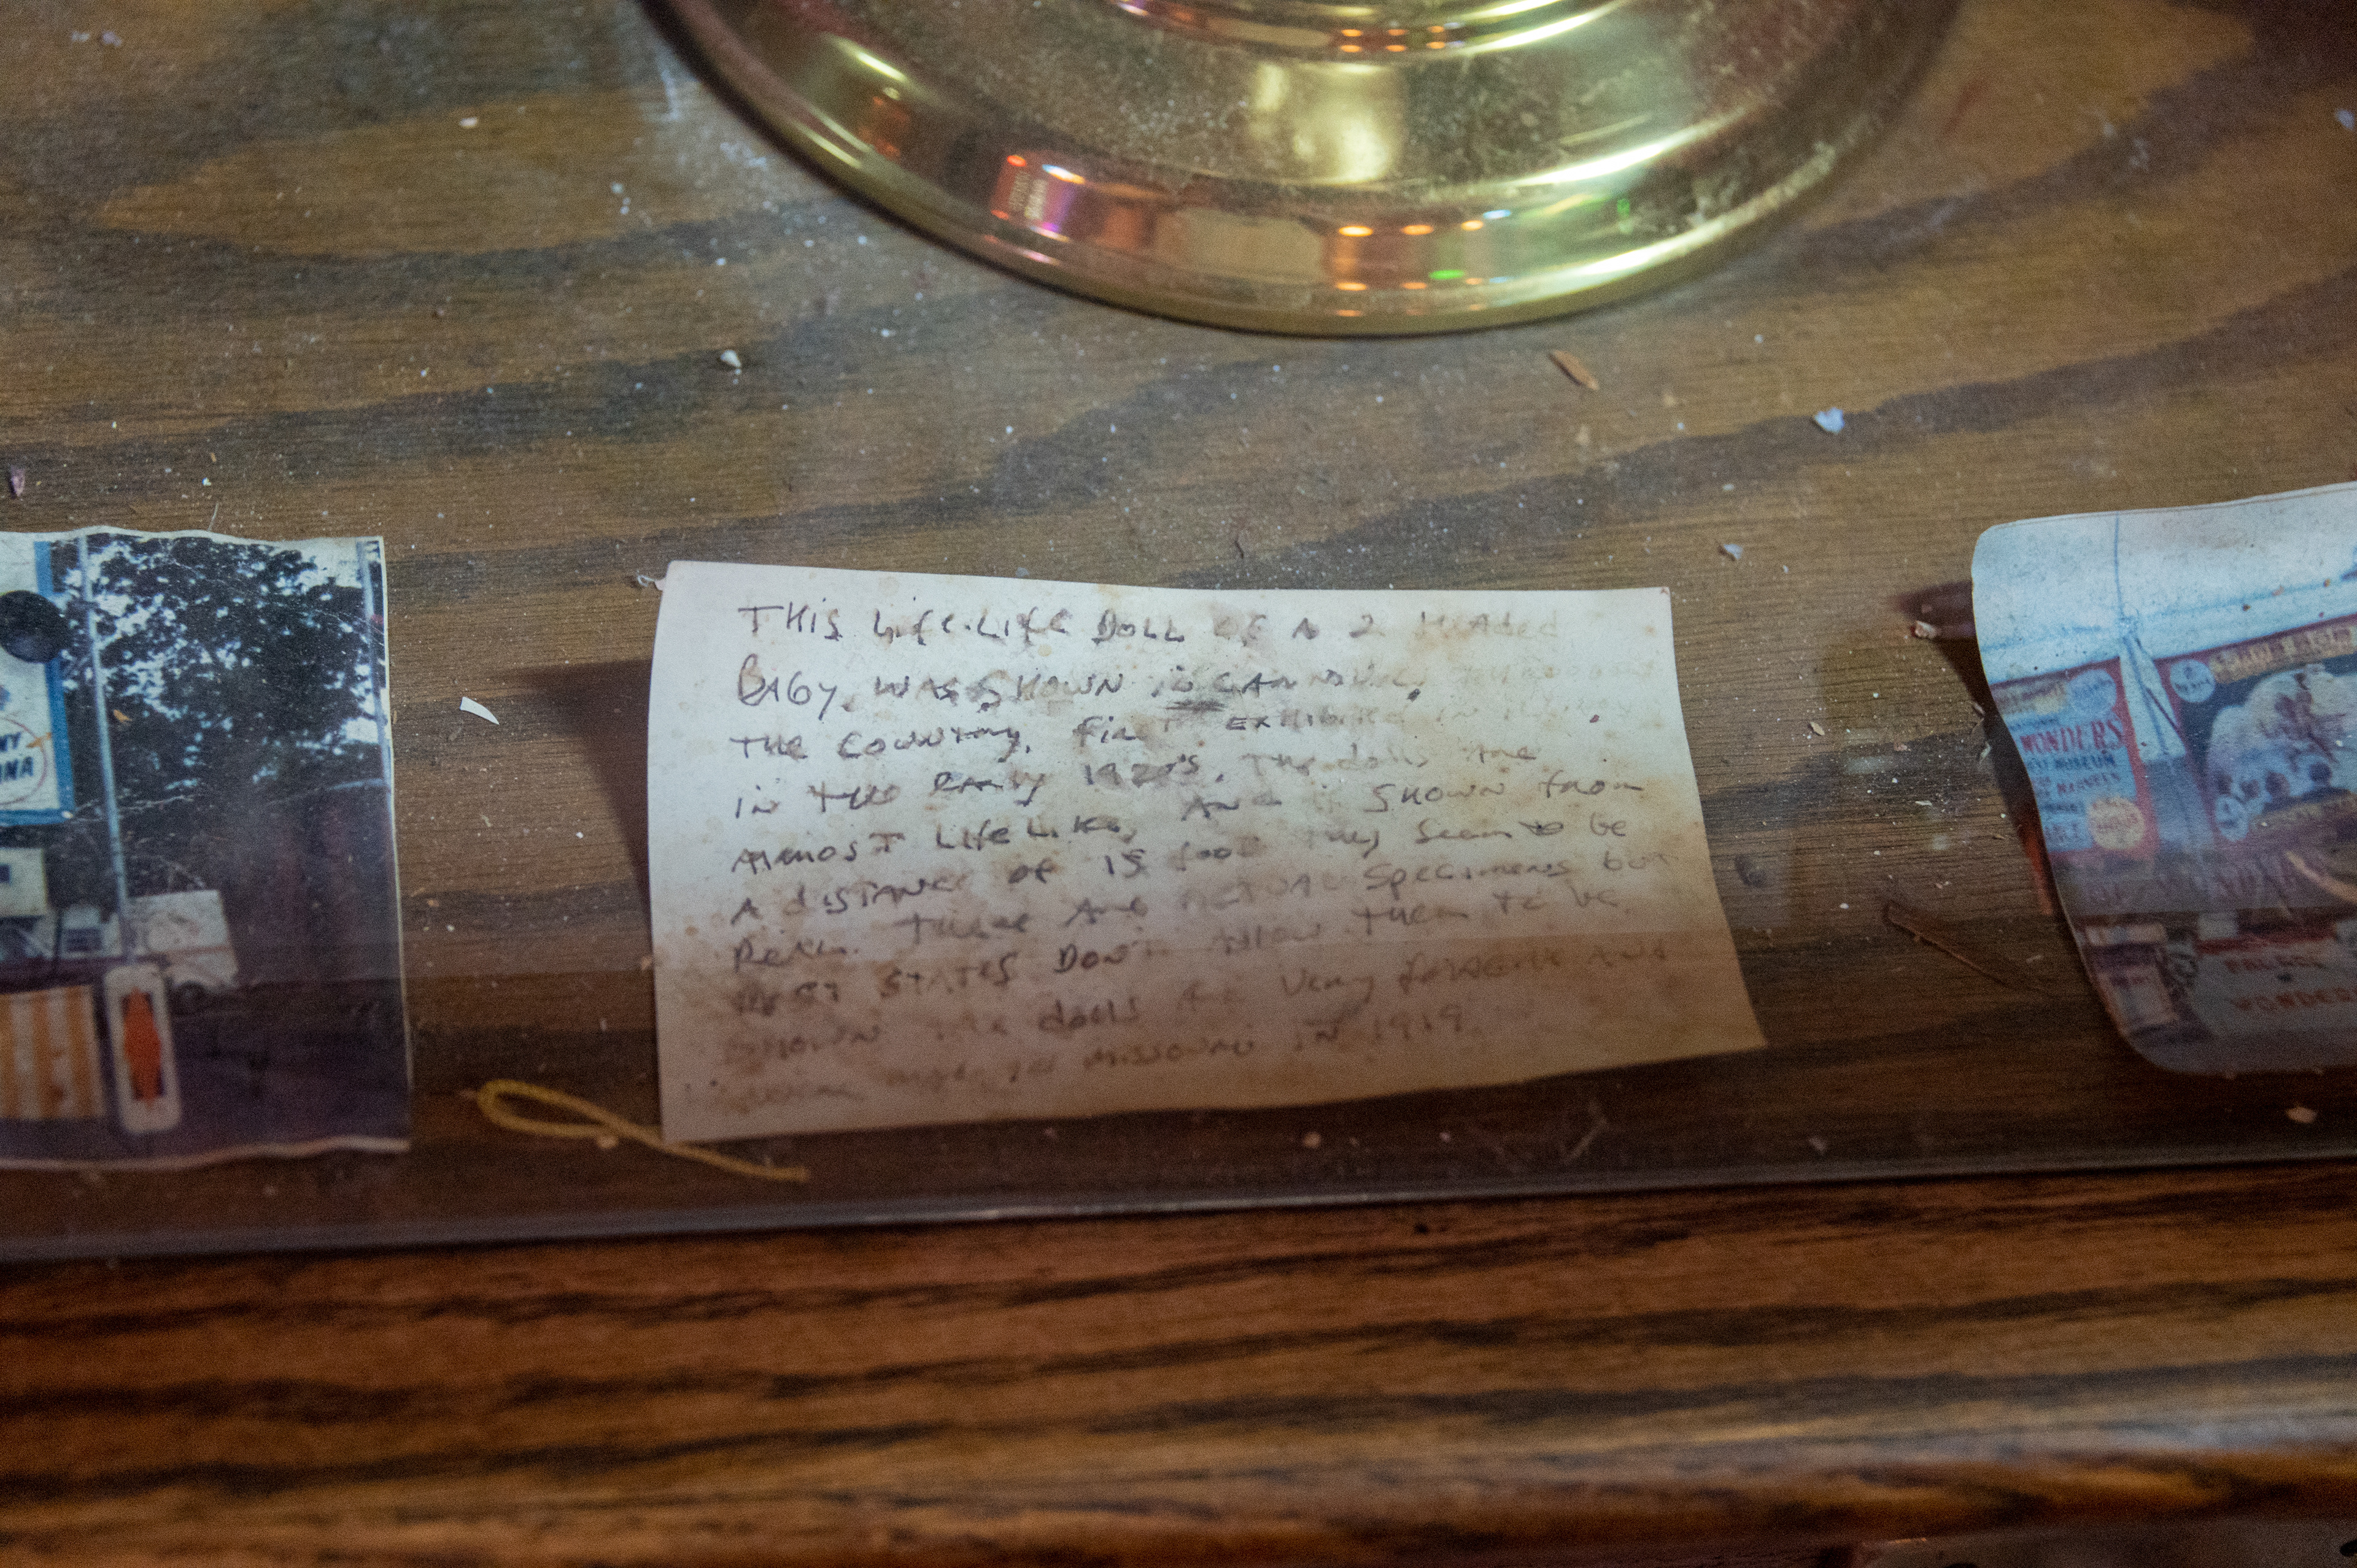 THIS Life-Life DOLL OF A 2 HEADED
BABY, WAS SHOWN IN CARNIVALS
THE COUNTRY, FIRST EXHIBITED IN
IN THE EARLY 1920'S. THE dolls ARE
ALMOST LIFE LIKE, AND SHOWN from
A DISTANCE OF 15 foot they seem to be
REAL. THERE ARE ACTUAL SPECIMENS but
MOST STATES DON'T ALLOW THEM TO BE
SHOWN THE dolls ARE VERY AND
MISSOURI IN 1919
WONDERS
MUSEUM
PALACE
WONDERS